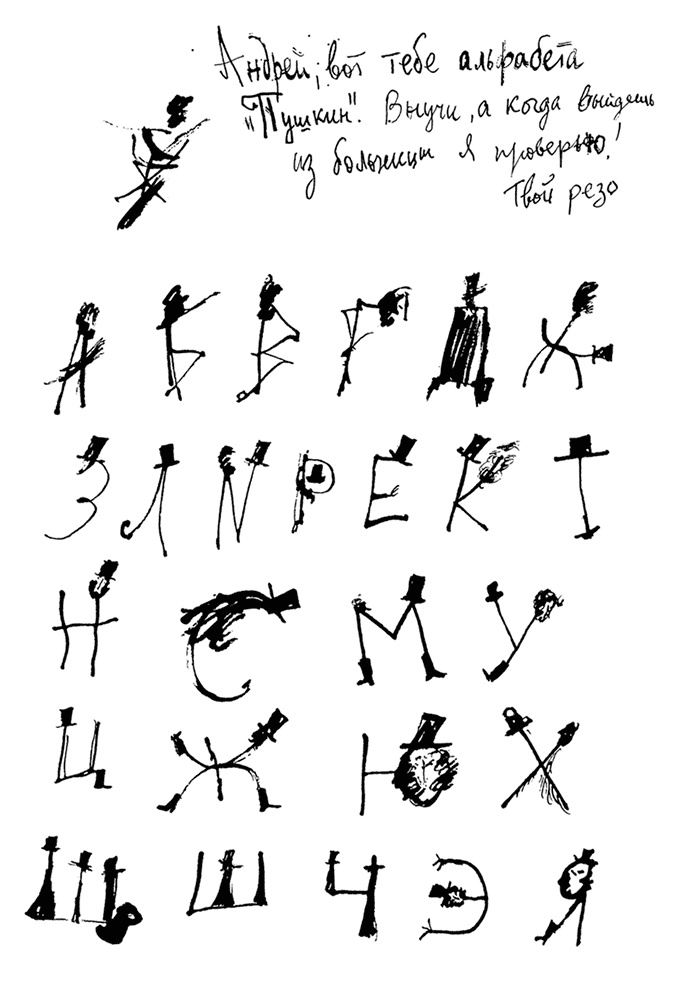 Андрей, вот тебе альфабета
„Пушкин". Выучи, а когда выйдешь
из больницы я проверю!
Твой резо
А Б В Г Д
З Л И Р Е К Т
Н С М У
Ц Ж Ю Х
Щ Ш Ч Э Я